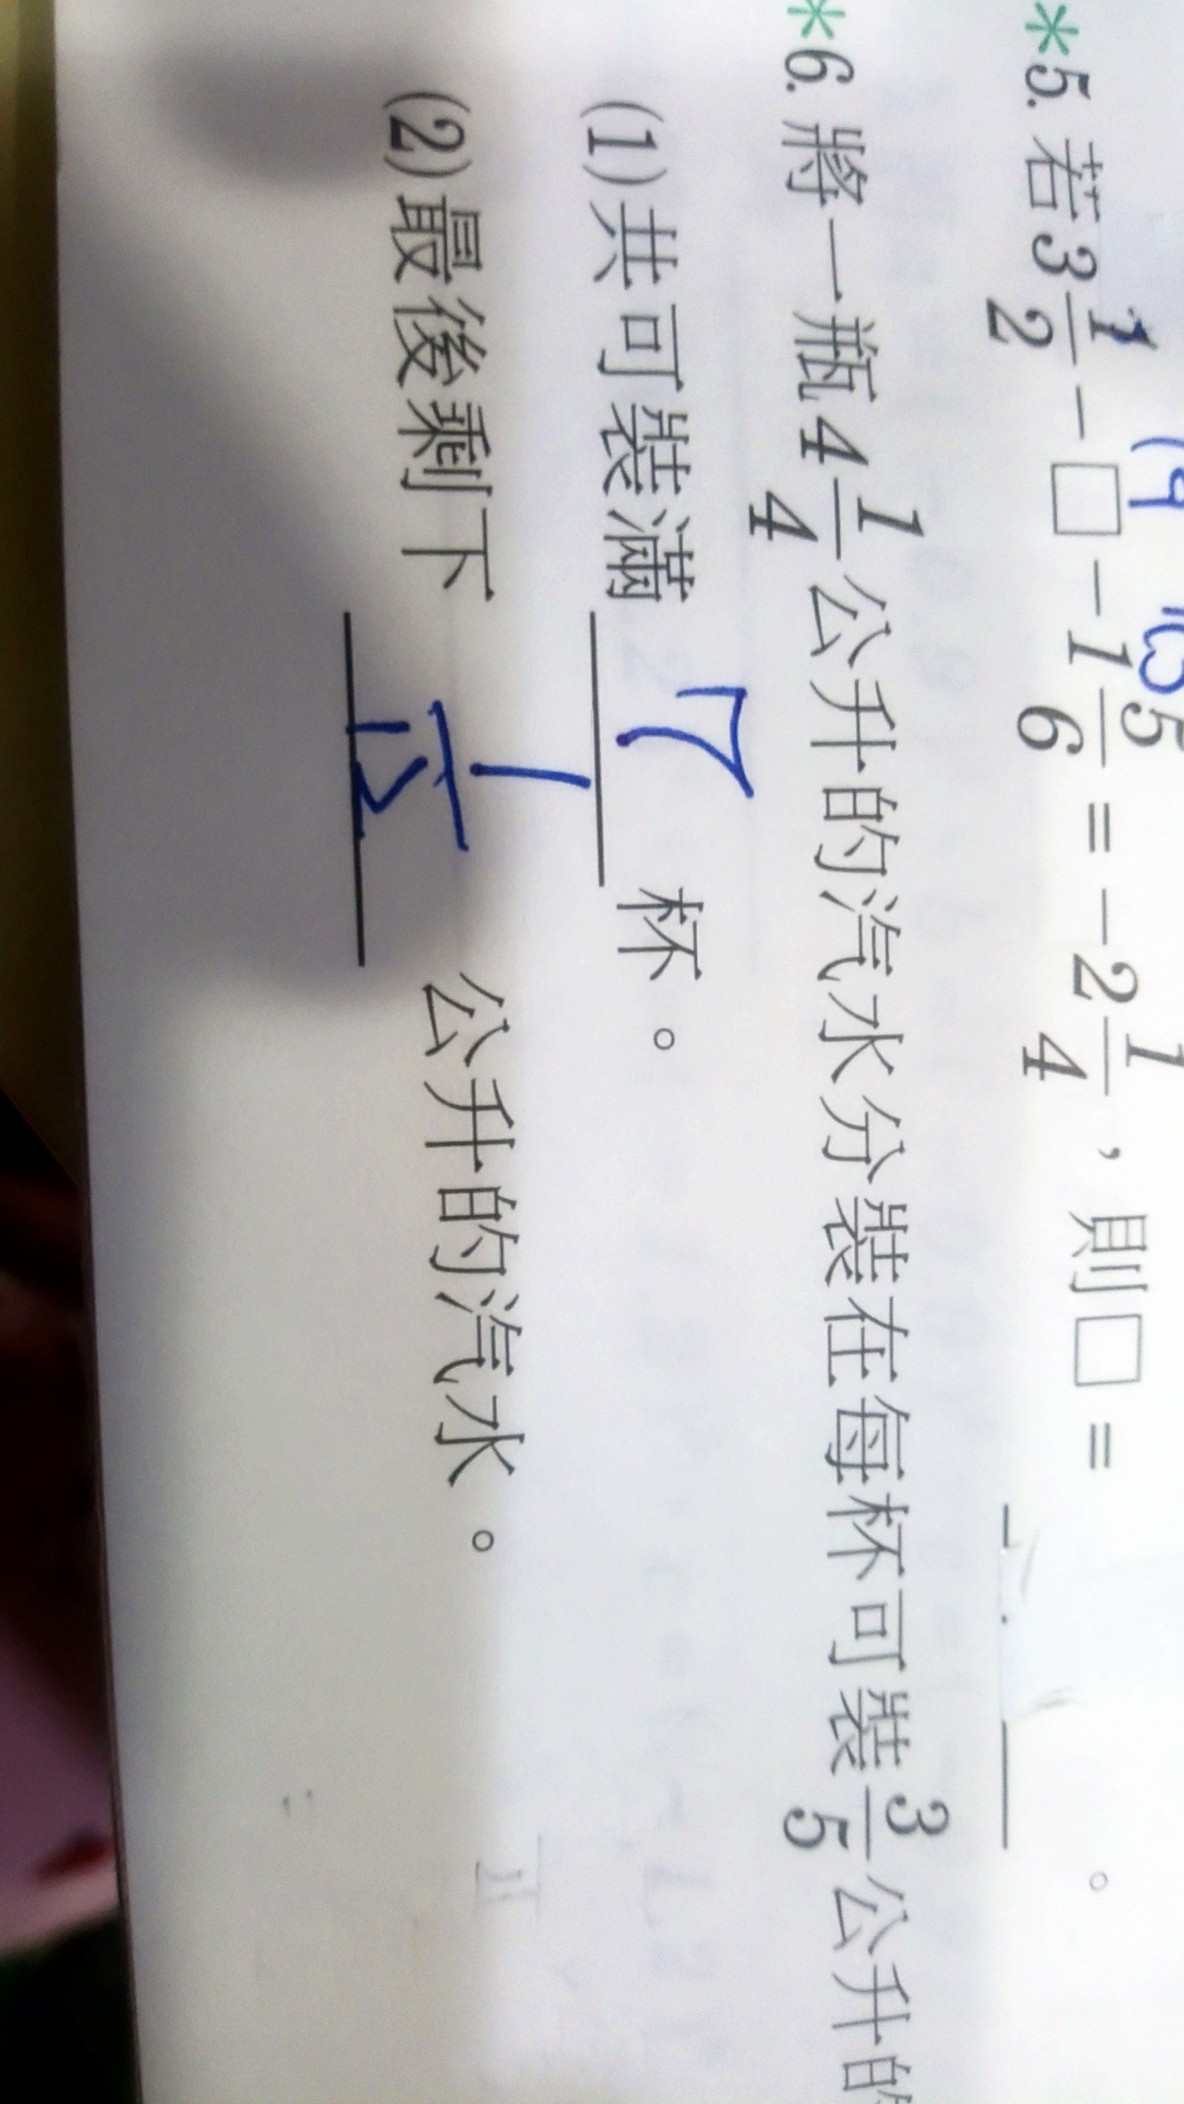 *5. 若3 1/2 - □ - 1 5/6 = -2 1/4，則□ =
*6. 將一瓶 4 1/4 公升的汽水分裝在每杯可裝 3/5 公升的
(1)共可裝滿 7 杯。
(2)最後剩下 公升的汽水。